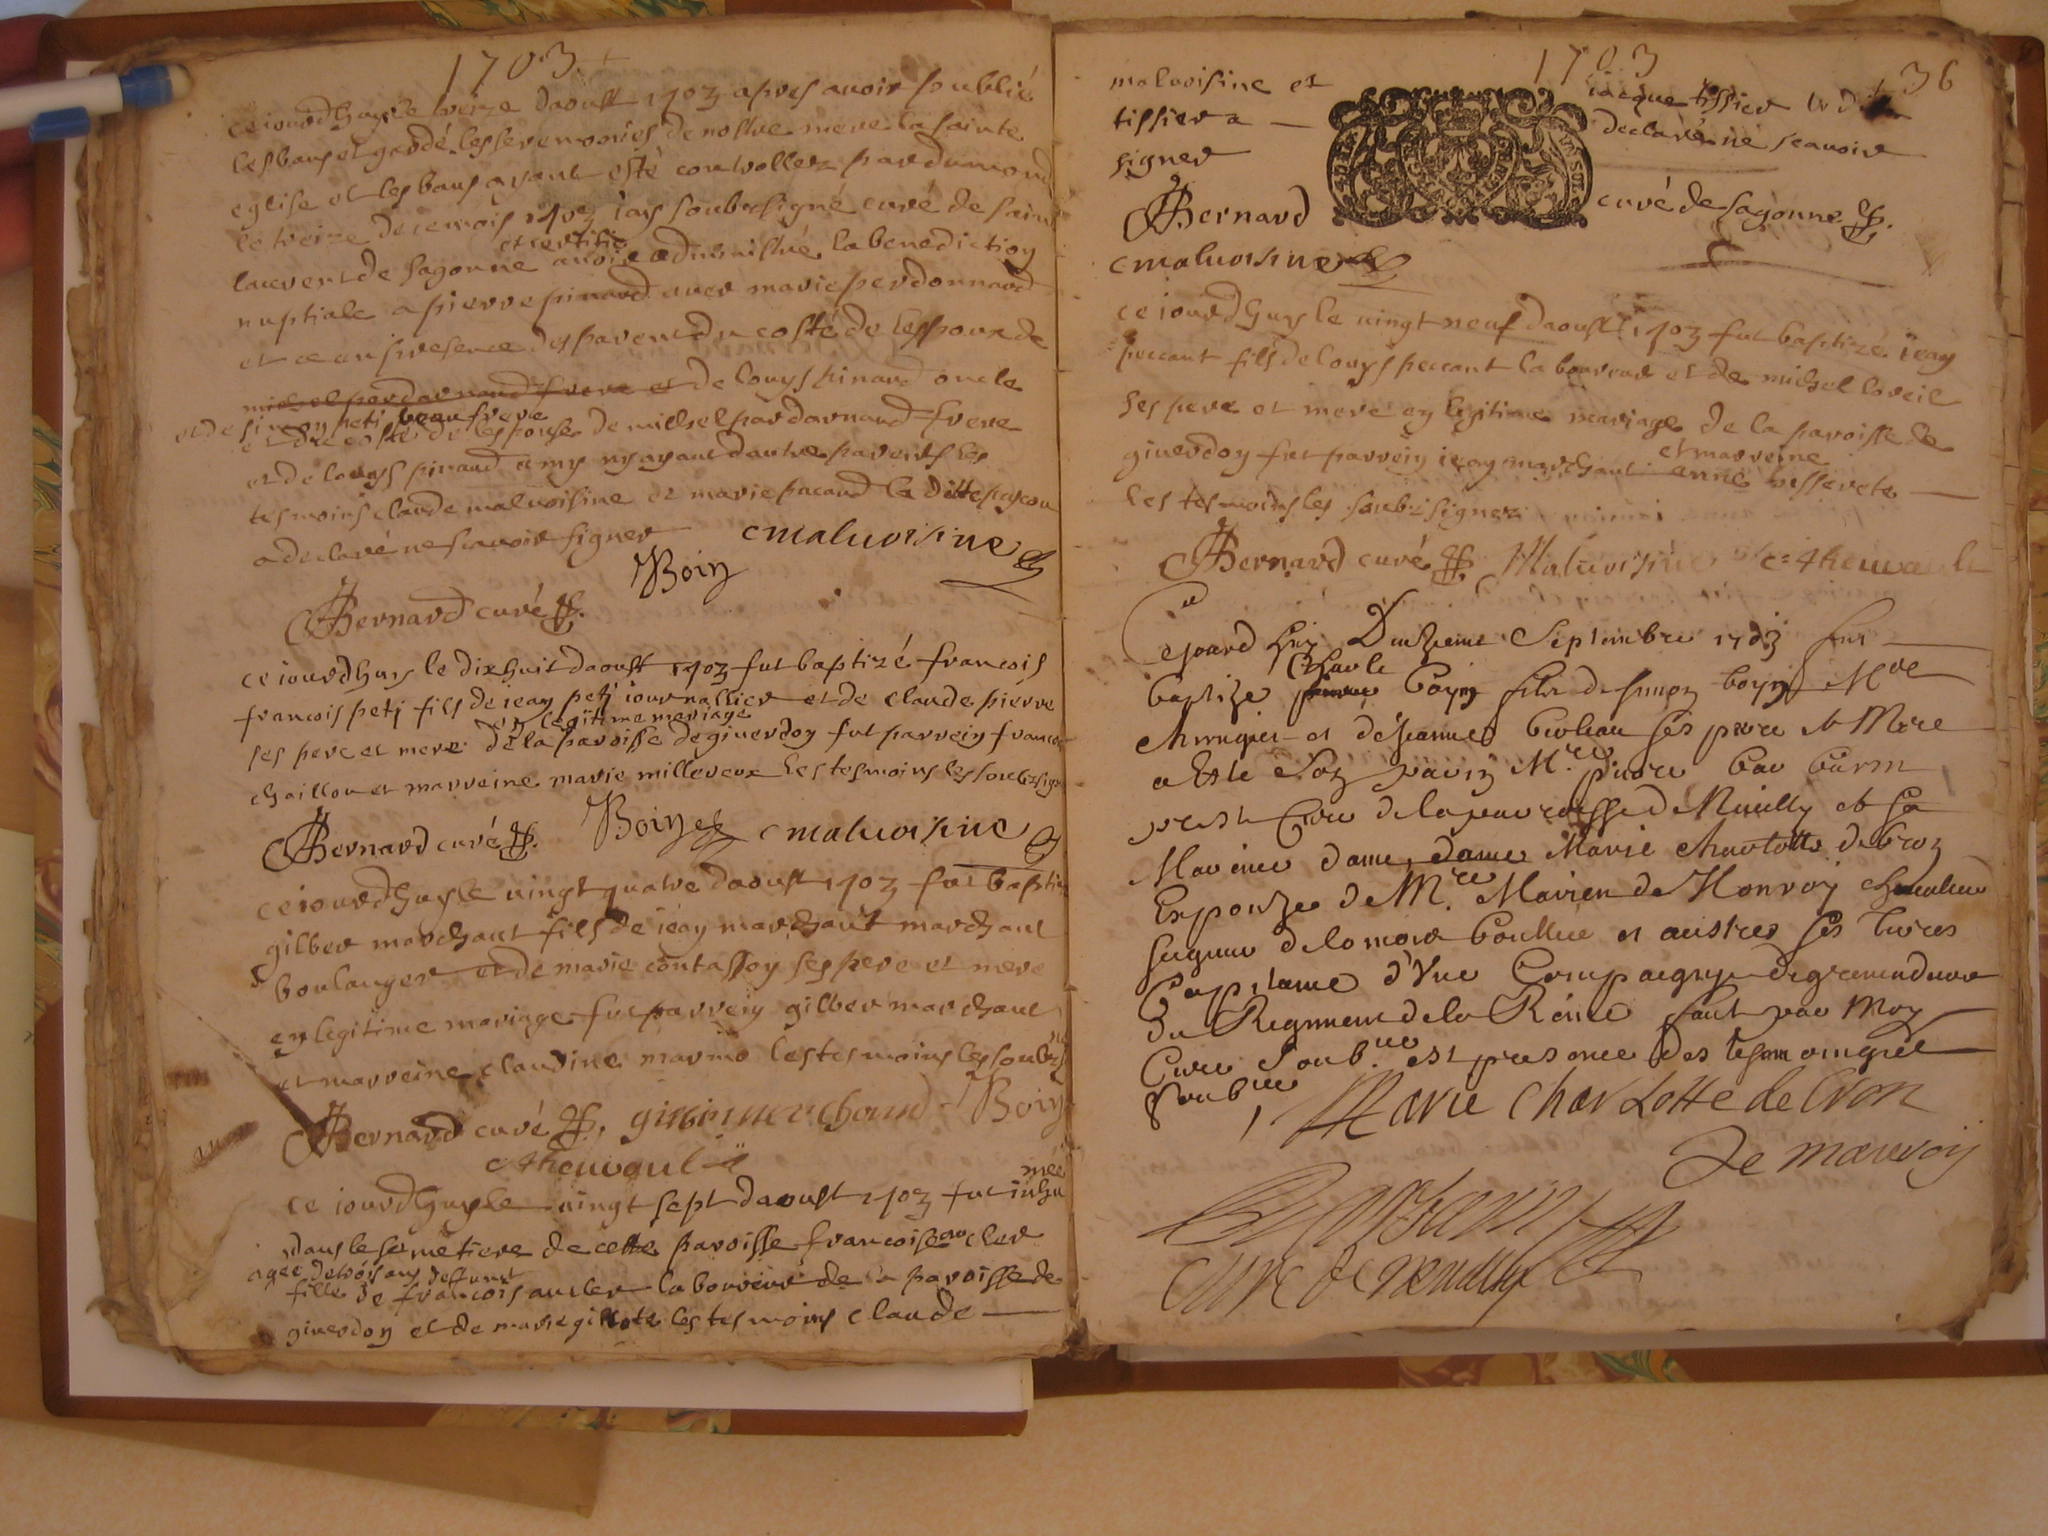 1703
ce iourdhuy le treize daoust 1703 apres avoir publié
les bans et gardé les seremonies de nostre mere la sainte
eglise et les bans ayant esté controllez par dumond
le treize de ce mois 1703 iay soubzsigné curé de saint
laurent de sagonne avoir administré la benediction
et certifie
nuptiale a pierre pinard avec marie perdonnard
et ce en presence des parents du costé de lespoux de
michel pardarnaud frere et de louys pinard oncle
et de simon peti beau frere
et du costé de lespouse de michel pardarnaud frere
et de louys pinaud amy nyayant dautre parents les
tesmoins claude malvoisine et marie pacaud la ditte
a declaré ne scavoir signer cmalvoisine
Boin
Bernard curé
ce iourdhuy le dixhuit daoust 1703 fut baptizé francois
francois peti fils de iean peti iournallier et de claude pierre
en legitime mariage
ses pere et mere de la paroisse de giverdon fut parrein francois
chaillou et marreine marie millereux les tesmoins les soubzsignez
Bernard curé Boin cmalvoisine
ce iourdhuy le vingt quatre daoust 1703 fut baptizé
gilber marchant fils de iean marchant marchant
boulanger et de marie contasson ses pere et mere
en legitime mariage fut parrein gilber marchant
et marreine claudine les tesmoins les soubz
Bernard curé Boin
ce iourdhuy le vingt sept daoust 1703 fut inhu
mée
dans le semetiere de cette paroisse francoise auclar
agee de trois ans deffunt
fille de francois auclar laboureur de la paroisse de
giverdon et de marie gillote les tesmoins claude
1703
36
malvoisine et iacque tissier
tissier a declaré ne scavoir
signer
Bernard curé de sagonne
cmalvoisine
ce iourdhuy le vingt neuf daoust 1703 fut baptizé iean
peccant fils de louys peccant laboureur et de michel
ses pere et mere en legitime mariage de la paroisse de
et marreine
giverdon fut parrein iean marchant anne bisserete
les tesmoins les soubzsignez
Bernard curé Malvoisine
Ce jourd huy Septembre 1703 fut
Charle
baptize boyn fils de simon boyn Mre
chirurgien et de Jeanne ses pere et Mere
a este son parin Mre
prestre Curé de la parroisse de Neuilly et sa
Marinne dame dame Marie charlotte de
Espouze de Mre Marien de chevalier
seigneur de et austres ses
Capitaine d'Vne Compaignye de grenadier
du Regiment de la Reine fait par Moy
Curé soubné est presence des tesmoings
soubné
Marie charlotte de
De
curé de neuilly